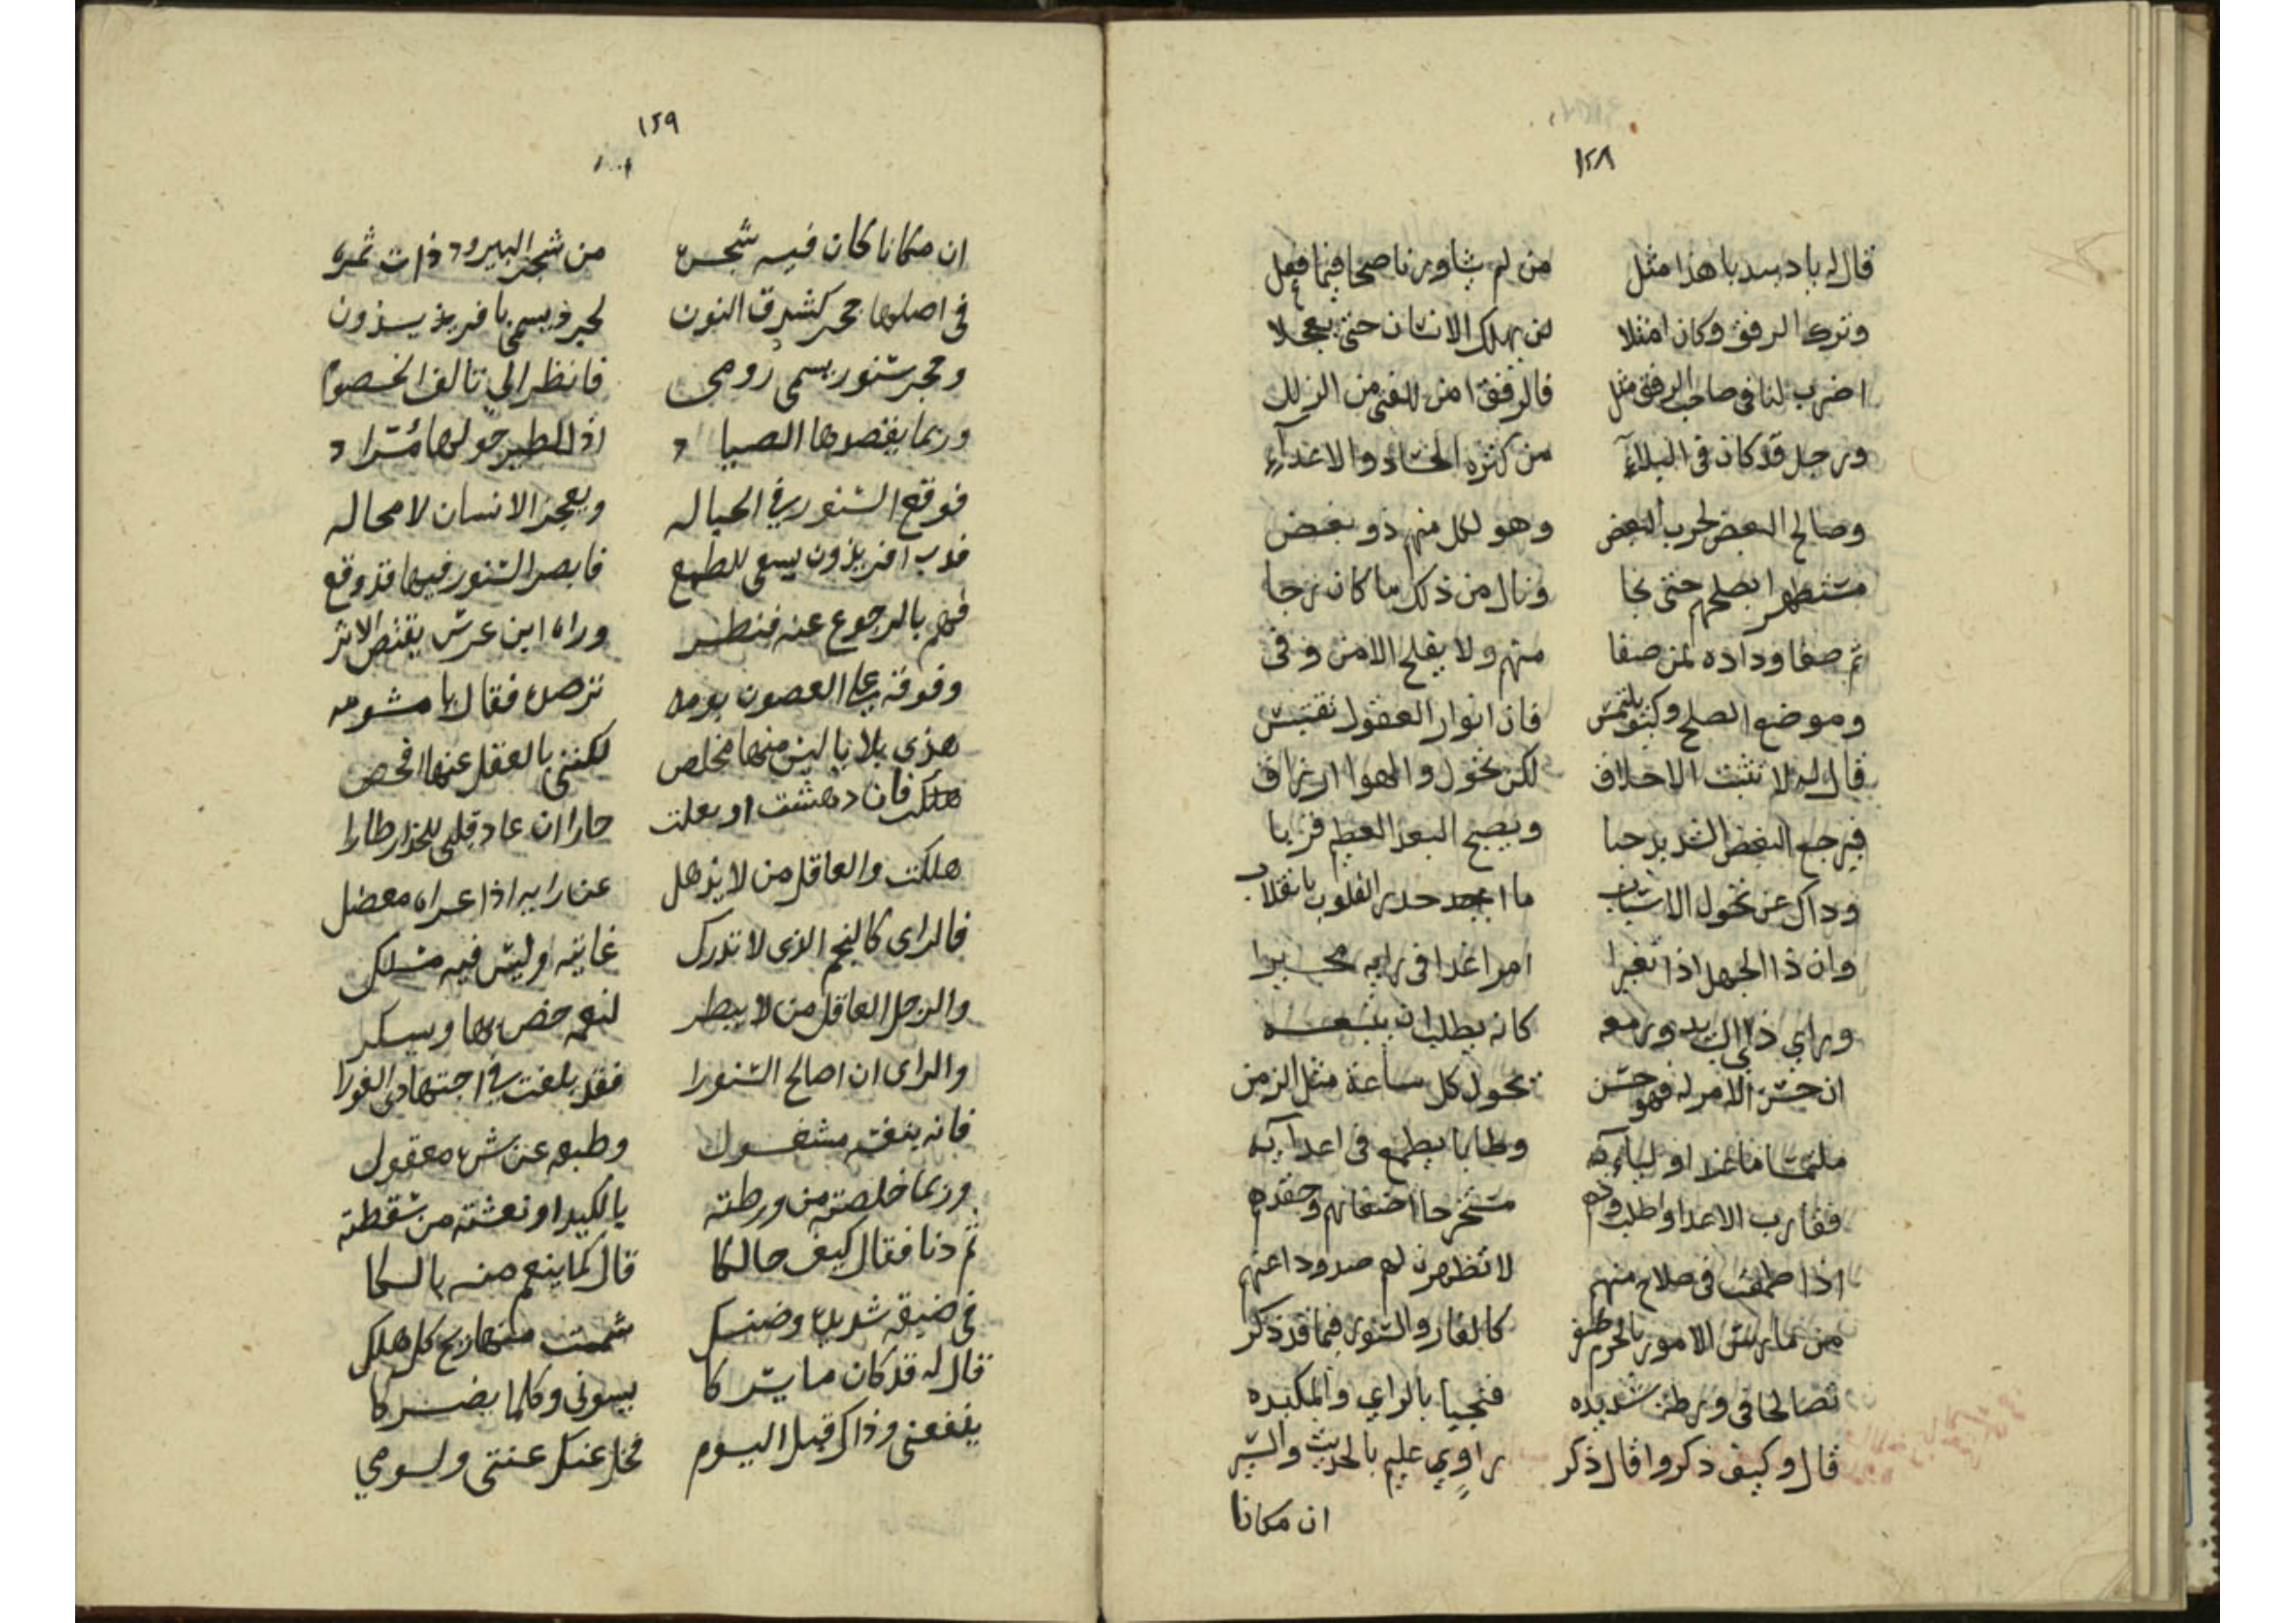 ١٢٨
قال له يا دبسد يا هذا مثل من لم يشاور ناصحا فيما فعل
وترك الرفق وكان امثلا لن يهلك الانسان حتى يعجلا
اضرب لنا في صاحب الرفق مثل فالرفق امن للفتى من الزلل
ورجل قد كان في البلاء من كثره الحساد والاعداء
وصالح البعض لحرب البعض وهو لكل منهم ذو بغض
مستظهرا بصلحهم حتى نجا ونال من ذلك ما كان رجا
ثم صفا وداده لمن صفا منهم ولا يفلح الا من وفى
وموضع الصلح وكيف يلتمس فان انوار العقول تقتبس
قال له لا تثبت الاخلاق لكن تحول والهوا ارزاق
فيرجع البغض الشديد حبا ويصبح البعد العظيم قربا
وداك عن تحول الاسباب ما اجدر القلوب بانقلاب
وان ذا الجهل اذا تغيرا امرا غدا في رايه محيرا
وراي ذي الراي يدور معه كانه يطلب ان يتبعه
ان حسن الامر له فهو حسن تحول كل ساعة مثل الزمن
ملتمسا ما عند اوليائه وطالبا يطمع في اعدائه
فقارب الاعدا واطلب ودهم مستخرجا اضغانهم وحقدهم
اذا طمعت في صلاح منهم لا تظهرن لهم صدودا عنهم
من مارس الامور بالحزم ظفر كالفار والسنور فيما قد ذكر
تصالحا في ورطة شديده فنجيا بالراي والمكيده
قال وكيف ذكروا قال ذكر راوي عليم بالحديث والسير
ان مكانا
١٢٩
ان مكانا كان فيه شجره من شجر البيرود ذات ثمره
في اصلها جحر كشدق النون لجرذ يسمى بافريذ يسذون
وجحر سنور يسمى رومي فانظر الى تالف الخصوم
وربما يقصدها الصياد اذ للطير حولها مستراد
فوقع السنور في الحباله ويعجز الانسان لا محاله
فدب افريذون يسعى للطمع فابصر السنور فيها قد وقع
فهم بالرجوع عنه فنظر وراه ابن عرس يقتص الاثر
وفوقه على الغصون بومه ترصده فقال يا مشومه
هذي بلايا ليس منها مخلص لكنني بالعقل عنها افحص
هلكت فان دهشت او بعلت حارا ان عاد قلبي للحذار طارا
هلكت والعاقل من لا يذهل عن رايه اذا عراه معضل
فالراي كاليم الذي لا تدرك غايته وليس فيه مسلك
والرجل العاقل من لا يبطر لنعمه خص بها ويسكر
والراي ان اصالح السنورا فقد بلغت في اجتهادي الغورا
فانه بنفسه مشغول وطبعه عن شره معقول
وربما خلصته من ورطته بالكيد او نعشته من سقطته
ثم دنا فقال كيف حالكا قال كما ينعم منه بالكا
في ضيقه شديده وضنك شممت منها ريح كل هلك
قال له قد كان ما يسركا يسوني وكلما يضركا
ينفعني وذاك قبل اليوم فخل عنك عنتي ولومي